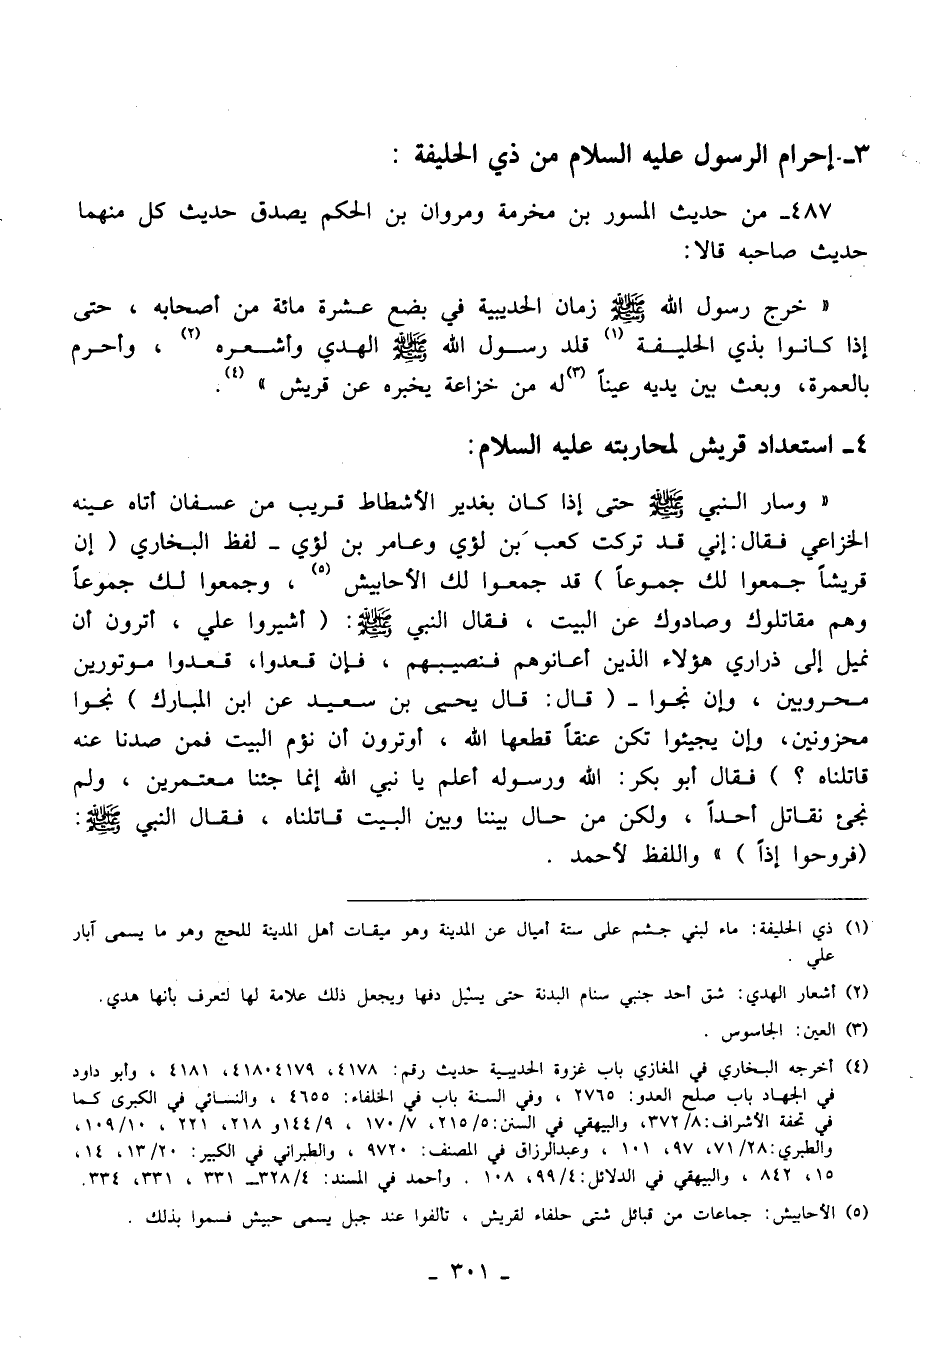 ٣ـ إحرام الرسول عليه السلام من ذي الحليفة :
٤٨٧ـ من حديث المسور بن مخرمة ومروان بن الحكم يصدق حديث كل منهما
حديث صاحبه قالا:
« خرج رسول الله ﷺ زمان الحديبية في بضع عشرة مائة من أصحابه ، حتى
إذا كانوا بذي الحليفة (١) قلد رسول الله ﷺ الهدي وأشعره (٢) ، وأحرم
بالعمرة، وبعث بين يديه عيناً (٣)له من خزاعة يخبره عن قريش » (٤).
٤ـ استعداد قريش لمحاربته عليه السلام:
« وسار النبي ﷺ حتى إذا كان بغدير الأشطاط قريب من عسفان أتاه عينه
الخزاعي فقال:إني قد تركت كعب بن لؤي وعامر بن لؤي ـ لفظ البخاري ( إن
قريشاً جمعوا لك جموعاً ) قد جمعوا لك الأحابيش (٥) ، وجمعوا لك جموعاً
وهم مقاتلوك وصادوك عن البيت ، فقال النبي ﷺ: ( أشيروا علي ، أترون أن
نميل إلى ذراري هؤلاء الذين أعانوهم فنصيبهم ، فإن قعدوا، قعدوا موتورين
محروبين ، وإن نجوا ـ ( قال: قال يحيى بن سعيد عن ابن المبارك ) نجوا
محزونين، وإن يجيئوا تكن عنقاً قطعها الله ، أوترون أن نؤم البيت فمن صدنا عنه
قاتلناه ؟ ) فقال أبو بكر: الله ورسوله أعلم يا نبي الله إنما جئنا معتمرين ، ولم
نجئ نقاتل أحداً ، ولكن من حال بيننا وبين البيت قاتلناه ، فقال النبي ﷺ:
(فروحوا إذاً ) » واللفظ لأحمد .
(١) ذي الحليفة: ماء لبني جشم على ستة أميال عن المدينة وهو ميقات أهل المدينة للحج وهو ما يسمى آبار
علي .
(٢) أشعار الهدي: شق أحد جنبي سنام البدنة حتى يسيل دفها ويجعل ذلك علامة لها لتعرف بأنها هدي.
(٣) العين: الجاسوس .
(٤) أخرجه البخاري في المغازي باب غزوة الحديبية حديث رقم: ٤١٧٨، ٤١٧٩،٤١٨٠، ٤١٨١ ، وأبو داود
في الجهاد باب صلح العدو: ٢٧٦٥ ، وفي السنة باب في الخلفاء: ٤٦٥٥ ، والنسائي في الكبرى كما
في تحفة الأشراف:٣٧٢/٨، والبيهقي في السنن:٢١٥/٥، ١٧٠/٧ ، ١٤٤/٩و ٢١٨، ٢٢١ ، ١٠٩/١٠،
والطبري:٧١/٢٨، ٩٧، ١٠١ ، وعبدالرزاق في المصنف: ٩٧٢٠ ، والطبراني في الكبير: ١٣/٢٠، ١٤،
١٥، ٨٤٢ ، والبيهقي في الدلائل:٩٩/٤، ١٠٨ . وأحمد في المسند: ٣٢٨/٤ـ ٣٣١ ، ٣٣١، ٣٣٤.
(٥) الأحابيش: جماعات من قبائل شتى حلفاء لقريش ، تالفوا عند جبل يسمى حبيش فسموا بذلك .
ـ ٣٠١ ـ